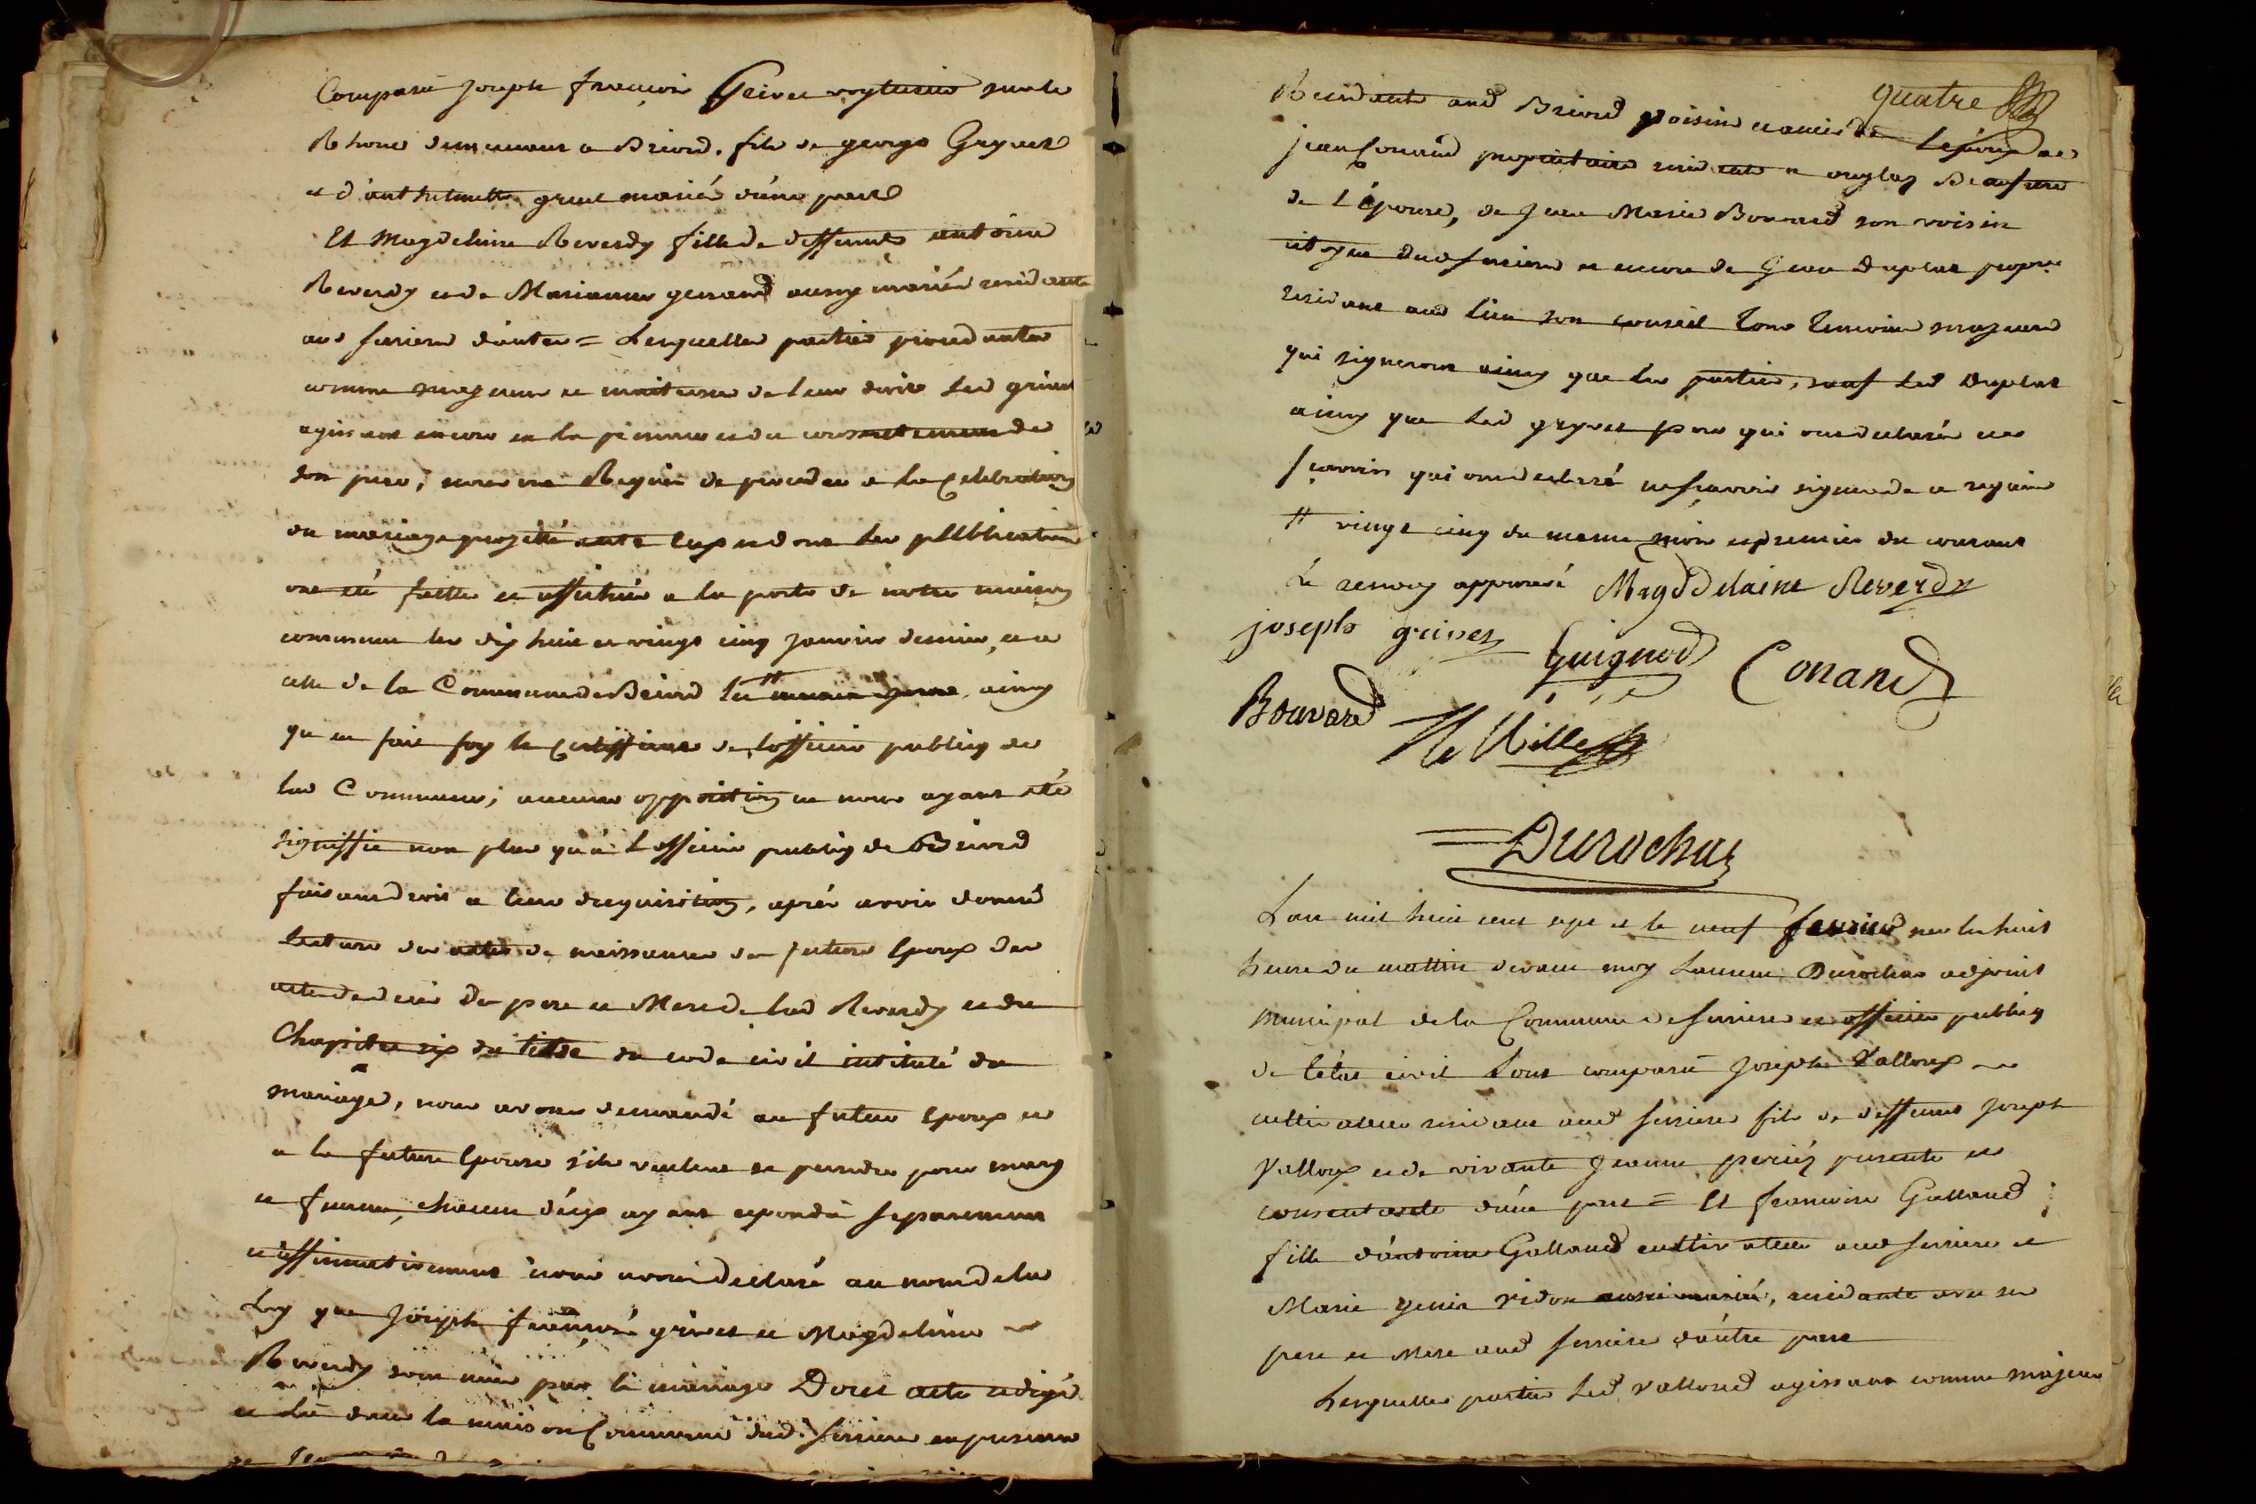 Comparu joseph francois Grivet voyturier sur le
Rhone demeurant a Briord, fils de george Gryvet
et d'anthelmette gruel mariés d'une part
Et Magdeleine Reverdy fille de deffunts antoine
Reverdy et de Marianne genand aussy mariés residante
aud serriere d'autre = Lesquelles parties procedantes
comme majeurs et maitresses de leur droits led grivet
agissant encore en la presence et du consentement de
son pere, nous ont Requis de proceder a la Celebration
du mariage projetté entre eux et dont les publications
ont été faittes et affichées a la porte de notre maison
commune les dix huit et vingt cinq janvier dernier, et a
celle de la Commune de Briord les # ainsy
qu'en fait foy le Certifficat de l'officier publicq de
lad Commune; aucune opposition ne nous ayant été
signiffiée non plus qu'a l'officier publicq de Briord
faisant droit a leur requisition, aprés avoir donné
lecture des actes de naissance des futurs Epoux des
actes de decés des pere et Mere de lad Reverdy et du
Chapitre six du titre du code civil intitulé du
mariage, nous avons demandé au futur Epoux et
a la future Epouse s'ils veulent se prendre pour mary
et femme, chacun d'eux ayant repondu separement
et affirmativement nous avons declaré au nom de la
Loy que Joseph francois grivet et Magdeleine
Reverdy sont unis par le mariage Dont acte redigé
et lu dans la maison Commune dud. serriere en presence
quatre
Residante aud Briord voisin et amis de l'époux de
jean Conand propriétaire residante a Beaufrere
de l'épouse, de Jean Marie Bouvard son voisin
citoyen dud serriere et encore de Jean Duplat propre
residant aud lieu son conseil tous temoins majeurs
qui signeront ainsy que les parties, sauf led Duplat
ainsy que led gryvet pere qui ont declarés ne
scavoir qui ont declaré ne scavoir signer de ce requis
# vingt cinq du meme mois et premier du courant
Le renvoy approuvé Magddelaine Reverdy
joseph grivet Guignod Conand
Bouvard
Durochat
L'an mil huit cent sept et le neuf fevrier sur les huit
heure du mattin devant moy Laurent Durochat adjoint
municipal de la Commune de serriere et officier publicq
de l'état civil sont comparu Joseph Valloux
cultivateur residant aud serriere fils de deffunt joseph
Valloux et de vivante Jeanne periéz presente et
consentante d'une part = Et francoise Galland
fille d'antoine Galland cultivateur aud serriere et
Marie genie ridon aussi mariés, residante avec ses
pere et mere aud serriere d'autre part
Lesquelles parties led valloud agissant comme majeur